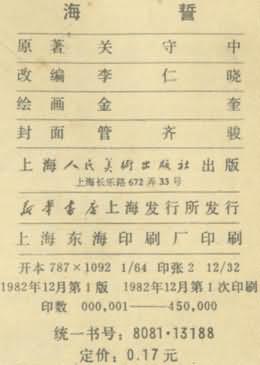 海 誓
原 著 关 守 中
改 编 李 仁 晓
绘 画 金 奎
封 面 管 齐 骏
上海人民美術出版社出版
上海长乐路672弄33号
新华書店上海发行所发行
上海东海印刷厂印刷
开本787×1092 1/64 印张2 12/32
1982年12月第1版 1982年12月第1次印刷
印数 000,001——450,000
统一书号：8081·13188
定价：0.17元